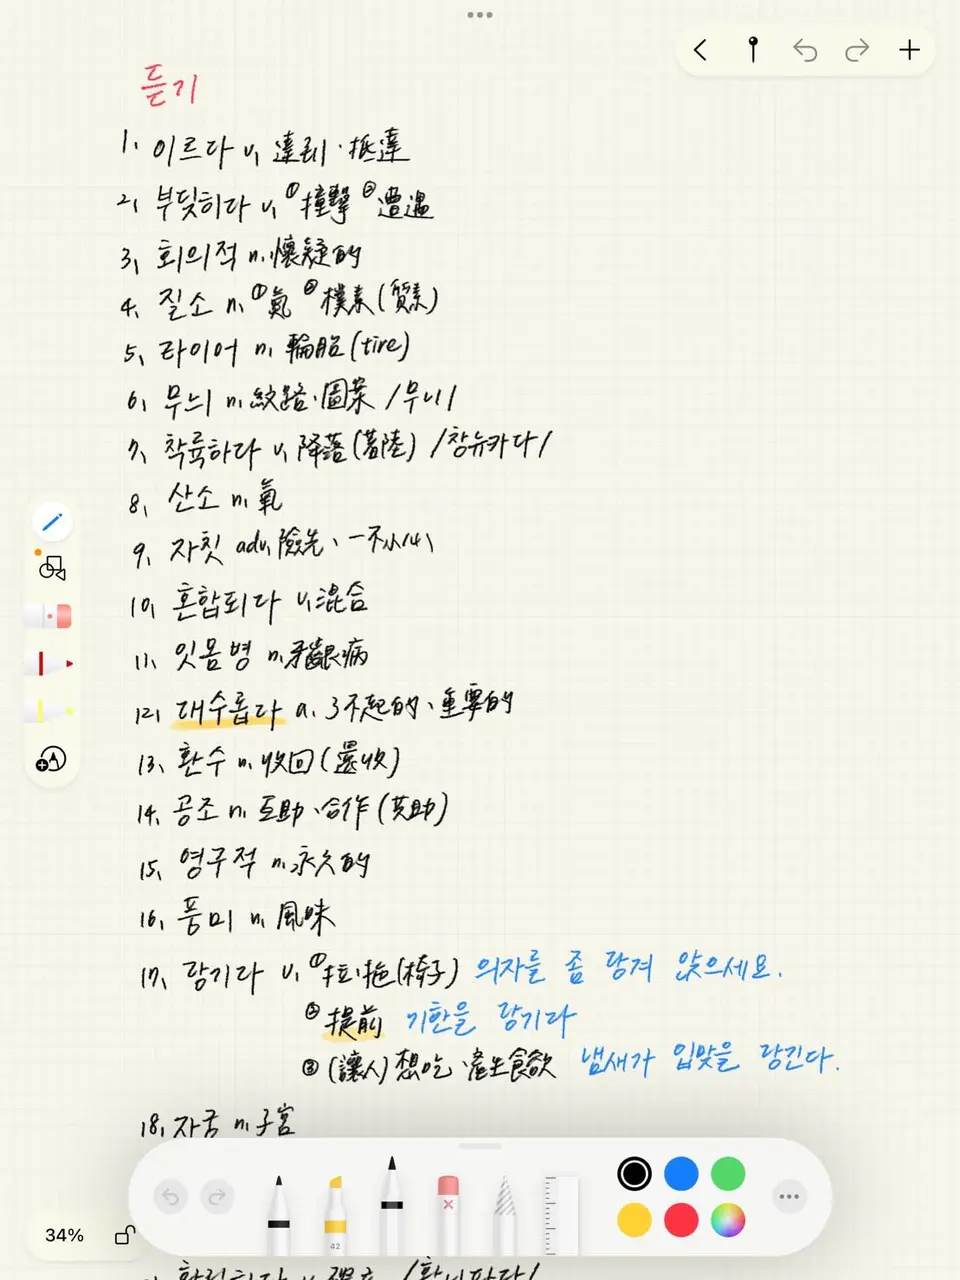 듣기
1. 이르다 v. 達到·抵達
2. 부딪히다 v. ①撞擊 ②遭遇
3. 회의적 n. 懷疑的
4. 질소 n. ①氮 ②樸素(質素)
5. 타이어 n. 輪胎(tire)
6. 무늬 n. 紋路·圖案 /무니/
7. 착륙하다 v. 降落(著陸) /창뉴카다/
8. 산소 n. 氧
9. 자칫 adv. 險先、一不小心、
10. 혼합되다 v. 混合
11. 잇몸병 n. 牙齦病
12. 대수롭다 a. 了不起的、重要的
13. 환수 n. 收回(還收)
14. 공조 n. 互助·合作(共助)
15. 영구적 n. 永久的
16. 풍미 n. 風味
17. 당기다 v. ①拉·拖(椅子) 의자를 좀 당겨 앉으세요.
②提前 기한을 당기다
③(讓人)想吃·產生食欲 냄새가 입맛을 당긴다.
18. 자궁 n. 子宮
42
34%